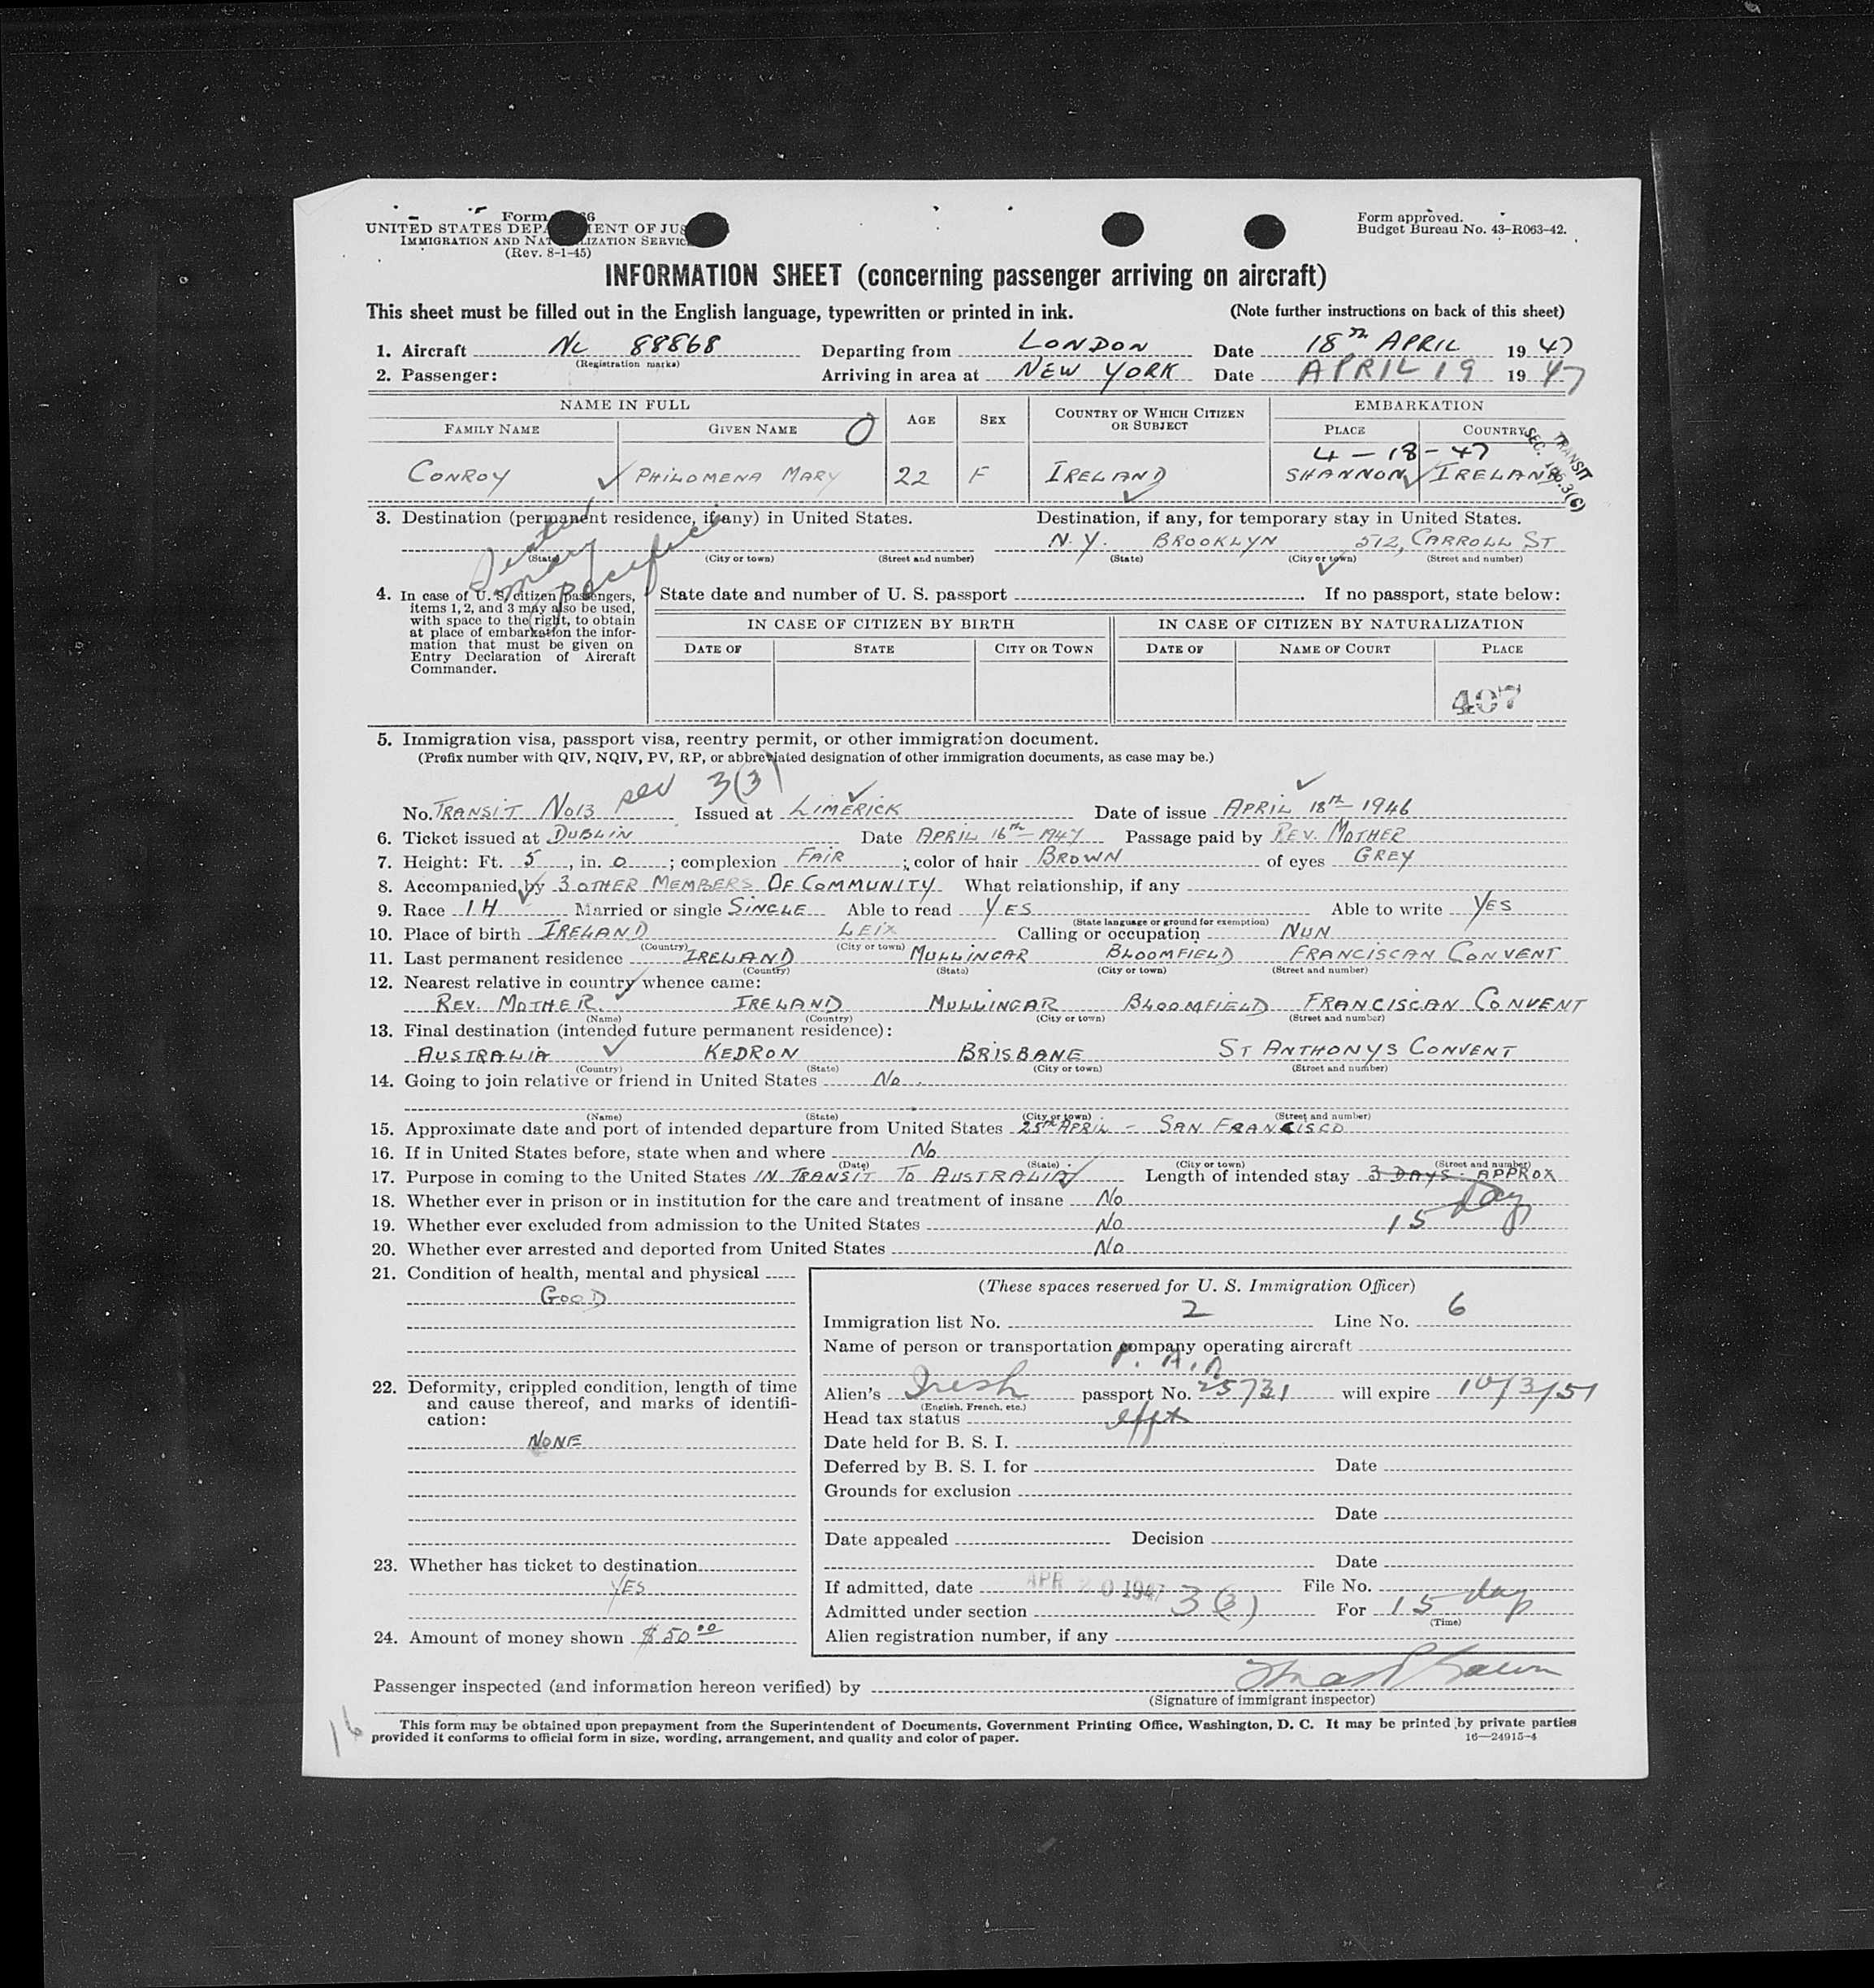 Form 66
UNITED STATES DEPA MENT OF JUS
IMMIGRATION AND NAT LIZATION SERVIC
(Rev. 8-1-45)
Form approved.
Budget Bureau No. 43-R063-42.
INFORMATION SHEET (concerning passenger arriving on aircraft)
This sheet must be filled out in the English language, typewritten or printed in ink. (Note further instructions on back of this sheet)
1. Aircraft NC 88868 Departing from LONDON Date 18TH APRIL 1947
(Registration marks)
2. Passenger: Arriving in area at NEW YORK Date APRIL 19 1947
NAME IN FULL AGE SEX COUNTRY OF WHICH CITIZEN OR SUBJECT EMBARKATION
FAMILY NAME GIVEN NAME O PLACE COUNTRY
4-18-47
CONROY ✓ PHILOMENA MARY 22 F IRELAND SHANNON ✓ IRELAND
TRANSIT
SEC. 3(6)
3. Destination (permanent residence, if any) in United States. Destination, if any, for temporary stay in United States.
N.Y. BROOKLYN 512, CARROLL ST
(State) (City or town) (Street and number) (State) (City or town) (Street and number)
Sister Mary Pacifica
4. In case of U. S. citizen passengers, items 1, 2, and 3 may also be used, with space to the right, to obtain at place of embarkation the information that must be given on Entry Declaration of Aircraft Commander.
State date and number of U. S. passport If no passport, state below:
IN CASE OF CITIZEN BY BIRTH IN CASE OF CITIZEN BY NATURALIZATION
DATE OF STATE CITY OR TOWN DATE OF NAME OF COURT PLACE
407
5. Immigration visa, passport visa, reentry permit, or other immigration document.
(Prefix number with QIV, NQIV, PV, RP, or abbreviated designation of other immigration documents, as case may be.)
3(3)
No. TRANSIT No13 Issued at LIMERICK Date of issue APRIL 18TH 1946
6. Ticket issued at DUBLIN Date APRIL 16th 1947 Passage paid by REV. MOTHER
7. Height: Ft. 5, in. 0; complexion FAIR; color of hair BROWN of eyes GREY
8. Accompanied by 3 OTHER MEMBERS OF COMMUNITY What relationship, if any
9. Race IH Married or single SINGLE Able to read YES Able to write YES
(State language or ground for exemption)
10. Place of birth IRELAND LEIX Calling or occupation NUN
(Country) (City or town)
11. Last permanent residence IRELAND MULLINGAR BLOOMFIELD FRANCISCAN CONVENT
(Country) (State) (City or town) (Street and number)
12. Nearest relative in country whence came:
REV. MOTHER. IRELAND MULLINGAR BLOOMFIELD FRANCISCAN CONVENT
(Name) (Country) (City or town) (Street and number)
13. Final destination (intended future permanent residence):
AUSTRALIA ✓ KEDRON BRISBANE ST ANTHONYS CONVENT
(Country) (State) (City or town) (Street and number)
14. Going to join relative or friend in United States No.
(Name) (State) (City or town) (Street and number)
15. Approximate date and port of intended departure from United States 25TH APRIL - SAN FRANCISCO
16. If in United States before, state when and where No
(Date) (State) (City or town) (Street and number)
17. Purpose in coming to the United States IN TRANSIT TO AUSTRALIA Length of intended stay 3 DAYS. APPROX
18. Whether ever in prison or in institution for the care and treatment of insane No
15 Day
19. Whether ever excluded from admission to the United States No
20. Whether ever arrested and deported from United States No
21. Condition of health, mental and physical
GOOD
22. Deformity, crippled condition, length of time and cause thereof, and marks of identification:
NONE
23. Whether has ticket to destination
YES
24. Amount of money shown $50.00
(These spaces reserved for U. S. Immigration Officer)
Immigration list No. 2 Line No. 6
Name of person or transportation company operating aircraft
P. A. A
Alien's Irish passport No. 25731 will expire 10/3/51
(English, French, etc.)
Head tax status
Date held for B. S. I.
Deferred by B. S. I. for Date
Grounds for exclusion
Date
Date appealed Decision
Date
If admitted, date APR 20 1947 File No.
Admitted under section 3(3) For 15 day
(Time)
Alien registration number, if any
Passenger inspected (and information hereon verified) by
(Signature of immigrant inspector)
16
This form may be obtained upon prepayment from the Superintendent of Documents, Government Printing Office, Washington, D. C. It may be printed by private parties
provided it conforms to official form in size, wording, arrangement, and quality and color of paper. 16—24915-4